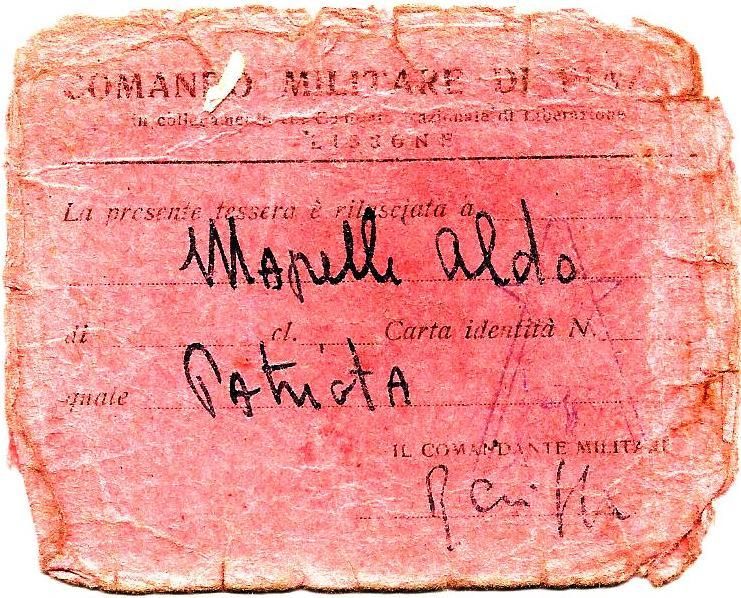 COMANDO MILITARE DI
in Nazionale di Liberazione
LISSONE
La presente tessera è rilasciata a
Mapelli Aldo
di cl. Carta identità N.
quale Patriota
IL COMANDANTE MILITARE